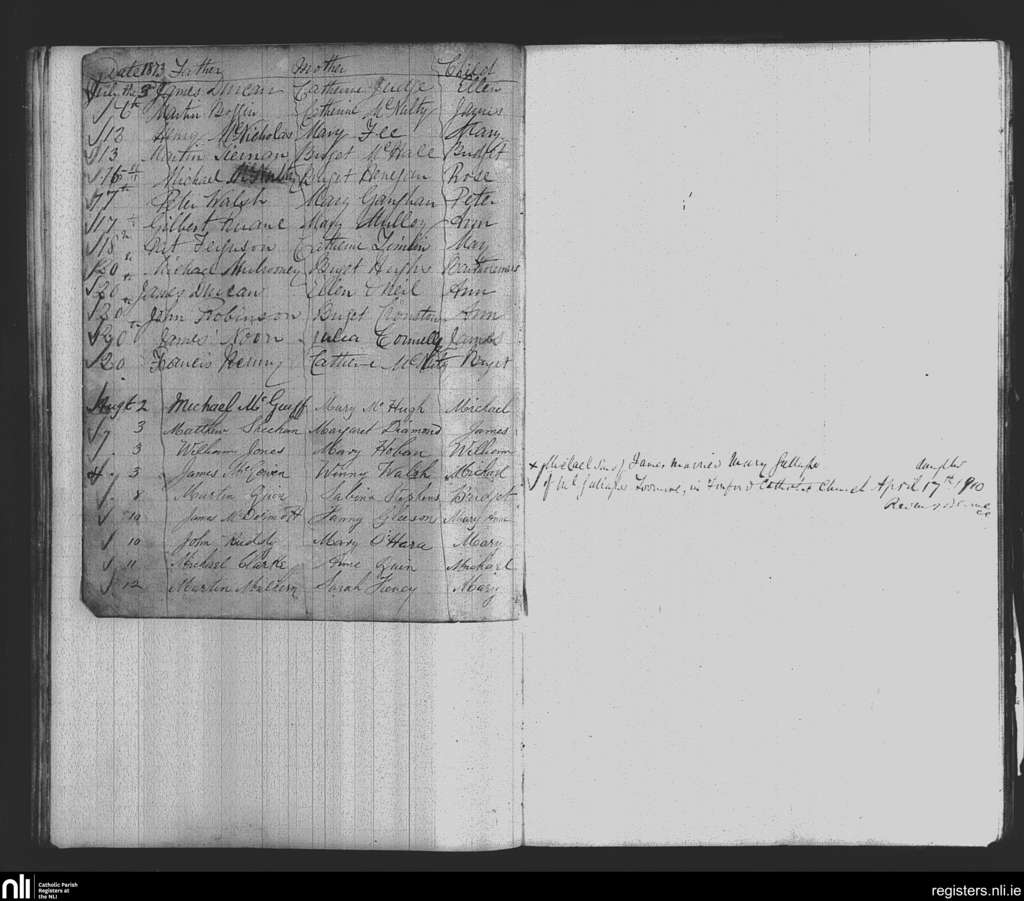 Date 1873 Father Mother Child
July the 3 James Duncan Catherine Judge Ellen
6th Martin Boffin Catherine McNulty James
12 Henry McNicholas Mary Fee Mary
13 Martin Tiernan Bridget McHale Bridget
16th Michael Bridget Rose
17th Peter Walsh Mary Gaughan Peter
117th Gilbert Ruane Mary Mulloy Ann
18th Pat Ferguson Catherine Timlin Mary
20th Michael Mulrooney Bridget Hughs
20th James Duncan Ellen O Neil Ann
20th John Robinson Ann
20th James Noon Julia Connelly James
20 Francis Henry Catherine McNulty
Augt 2 Michael McGuff Mary McHugh Michael
3 Matthew Sheehan Margaret Diamond James
3 William Jones Mary Hoban William
3 James McGowen Winny Walsh Michael
8 Martin Sabina Stephens Bridget
10 James McDermott Fanny Gleeson Mary Ann
10 John Ruddy Mary O'Hara Mary
11 Michael Clarke Anne Quin Michael
12 Martin Mulhern Sarah Mary
x Michael son of James married Mary Gallagher daughter
of Ml Gallagher in Foxford Catholic Church April 17th 1910
nli Catholic Parish
Registers at
the NLI
registers.nli.ie